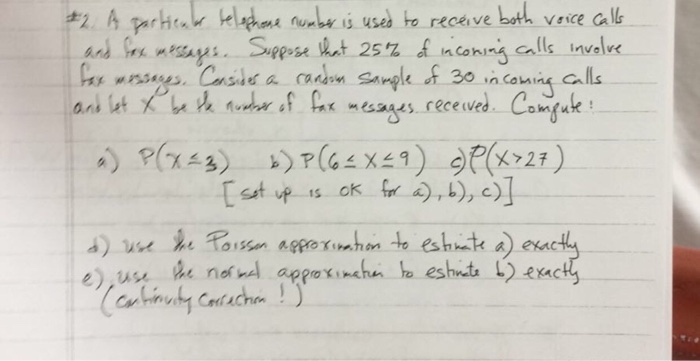 #2. A particular telephone number is used to receive both voice calls
and fax messages. Suppose that 25% of incoming calls involve
fax messages. Consider a random sample of 30 incoming calls
and let X be the number of fax messages received. Compute:
a) P(X ≤ 3) b) P(6 ≤ X ≤ 9) c) P(X > 27)
[set up is OK for a), b), c)]
d) use the Poisson approximation to estimate a) exactly
e) use the normal approximation to estimate b) exactly
(Continuity Correction!)